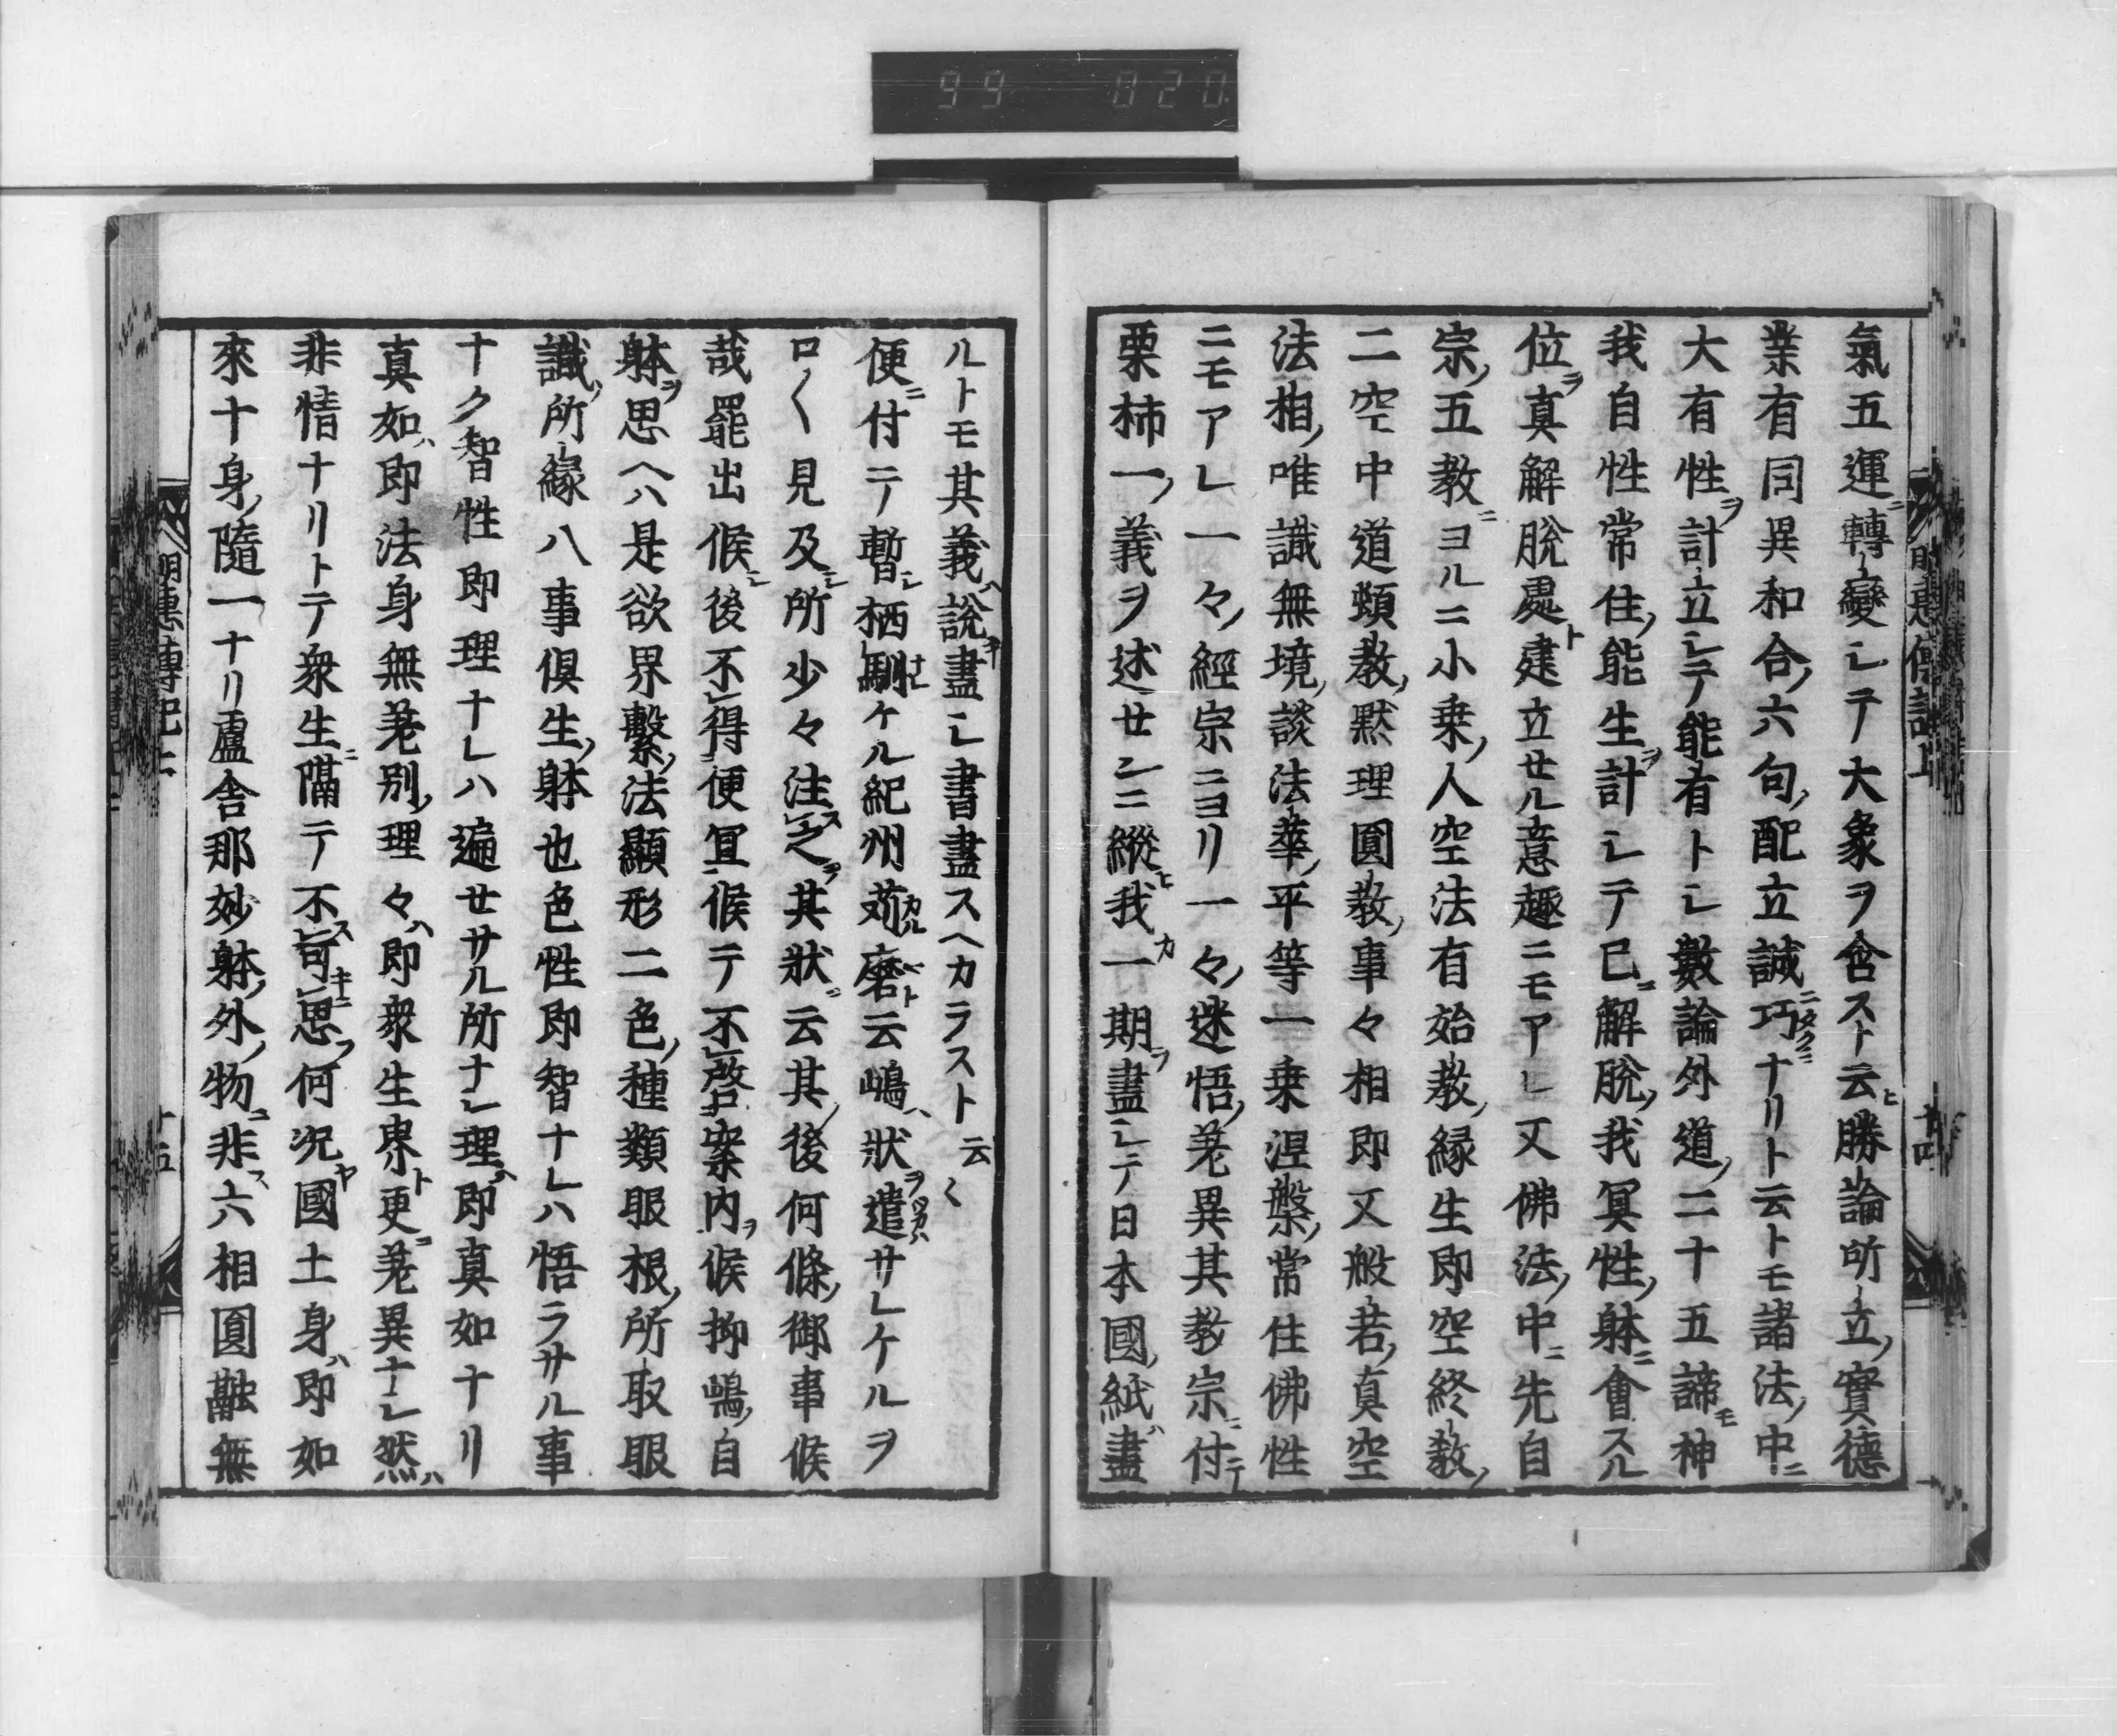 99 020
氣五運ニ轉變シテ大象ヲ含スト云ヒ勝論所立ノ實德
業有同異和合ノ六句ノ配立誠ニ巧ナリト云トモ諸法ノ中ニ
大有性ヲ計立シテ能有トシ數論外道ノ二十五諦モ神
我自性常住ノ能生ヲ計シテ已ニ解脫ノ我冥性ノ躰ニ會スル
位ヲ真解脫處ト建立セル意趣ニモアレ又佛法ノ中ニ先自
宗ノ五教ニヨルニ小乗ノ人空法有始教ノ緣生即空終教ノ
二空中道頓教ノ黙理圓教ノ事々相即又般若ノ真空
法相ノ唯識無境ノ談法華ノ平等一乗涅槃ノ常住佛性
ニモアレ一々ノ經宗ニヨリ一々ノ迷悟ノ差異其教宗ニ付テ
栗柿一ノ義ヲ述センニ縱ヒ我カ一期ヲ盡シテ日本國ノ紙ハ盡
ルトモ其義ハ說盡シ書盡スヘカラスト云〱
便ニ付テ暫シ栖馴ケル紀州苅磨ト云嶋ハ狀ヲ遣サレケルヲ
ロ〱見及シ所少々注ス之ヲ其狀ニ云其ノ後何條ノ御事候
哉罷出候シ後不得便宜候テ不啓案内ヲ候抑嶋ノ自
躰ヲ思ヘハ是欲界繫ノ法顯形二色ノ種類眼根ノ所取眼
識ノ所緣八事俱生ノ躰也色性即智ナレハ悟ラサル事
ナク智性即理ナレハ遍セサル所ナシ理ハ即真如ナリ
真如ハ即法身無差別ノ理々ハ即衆生界ト更ニ差異ナシ然ハ
非情ナリトテ衆生ニ隔テ不可思ヲ何況ヤ國土身ハ即如
來十身ノ隨一ナリ盧舍那妙躰ノ外ノ物ニ非ス六相圓融無